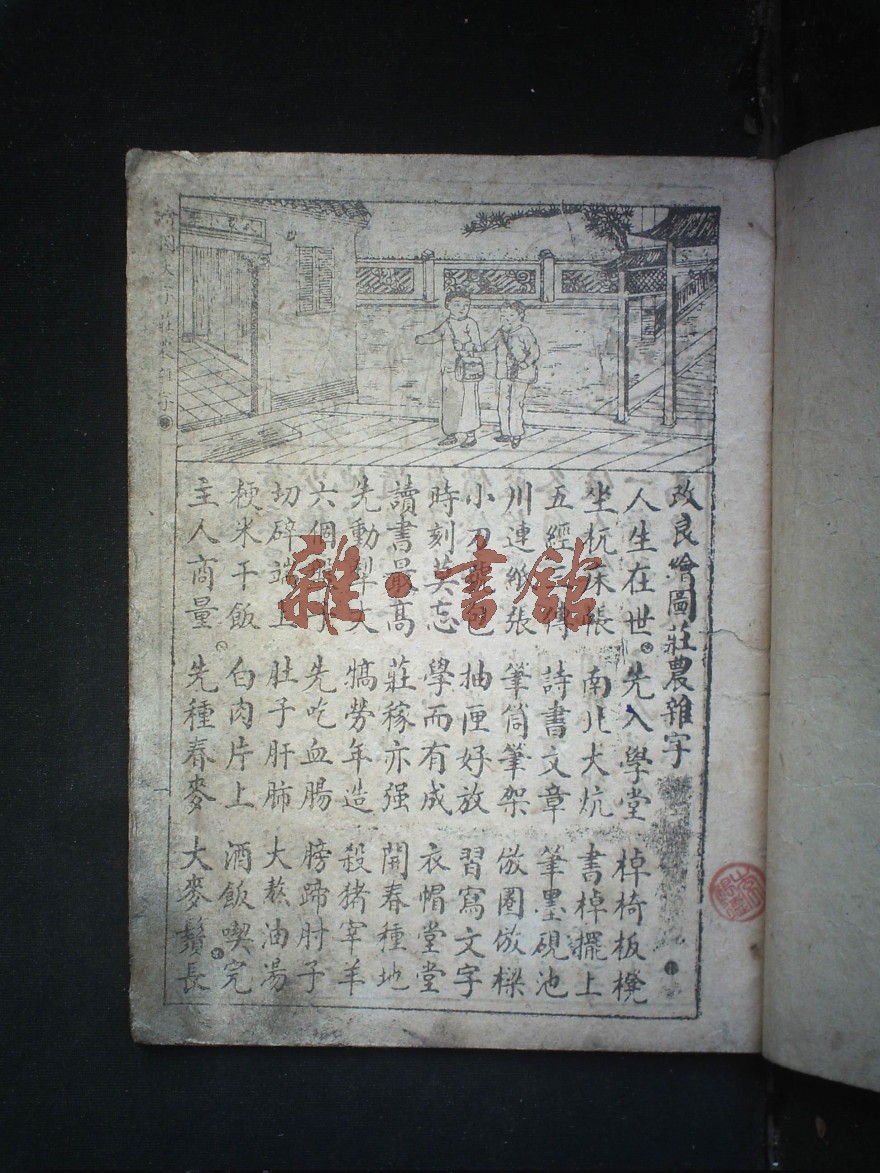 改良繪圖莊農雜字
人生在世 先入學堂 棹椅板櫈
坐杌床帳 南北大炕 書棹擺上
五經 傳 詩書文章 筆墨硯池
川連紙張 筆筒筆架 倣圈倣樑
小刀 包 抽匣好放 習寫文字
時刻莫忘 學而有成 衣帽堂堂
讀書最高 莊稼亦强 開春種地
先動犁 犒勞年造 殺猪宰羊
六個 先吃血腸 膀蹄肘子
切碎端上 肚子肝肺 大熬油湯
粳米干飯 白肉片上 酒飯喫完
主人商量 先種春麥 大麥鬚長
雜·書館